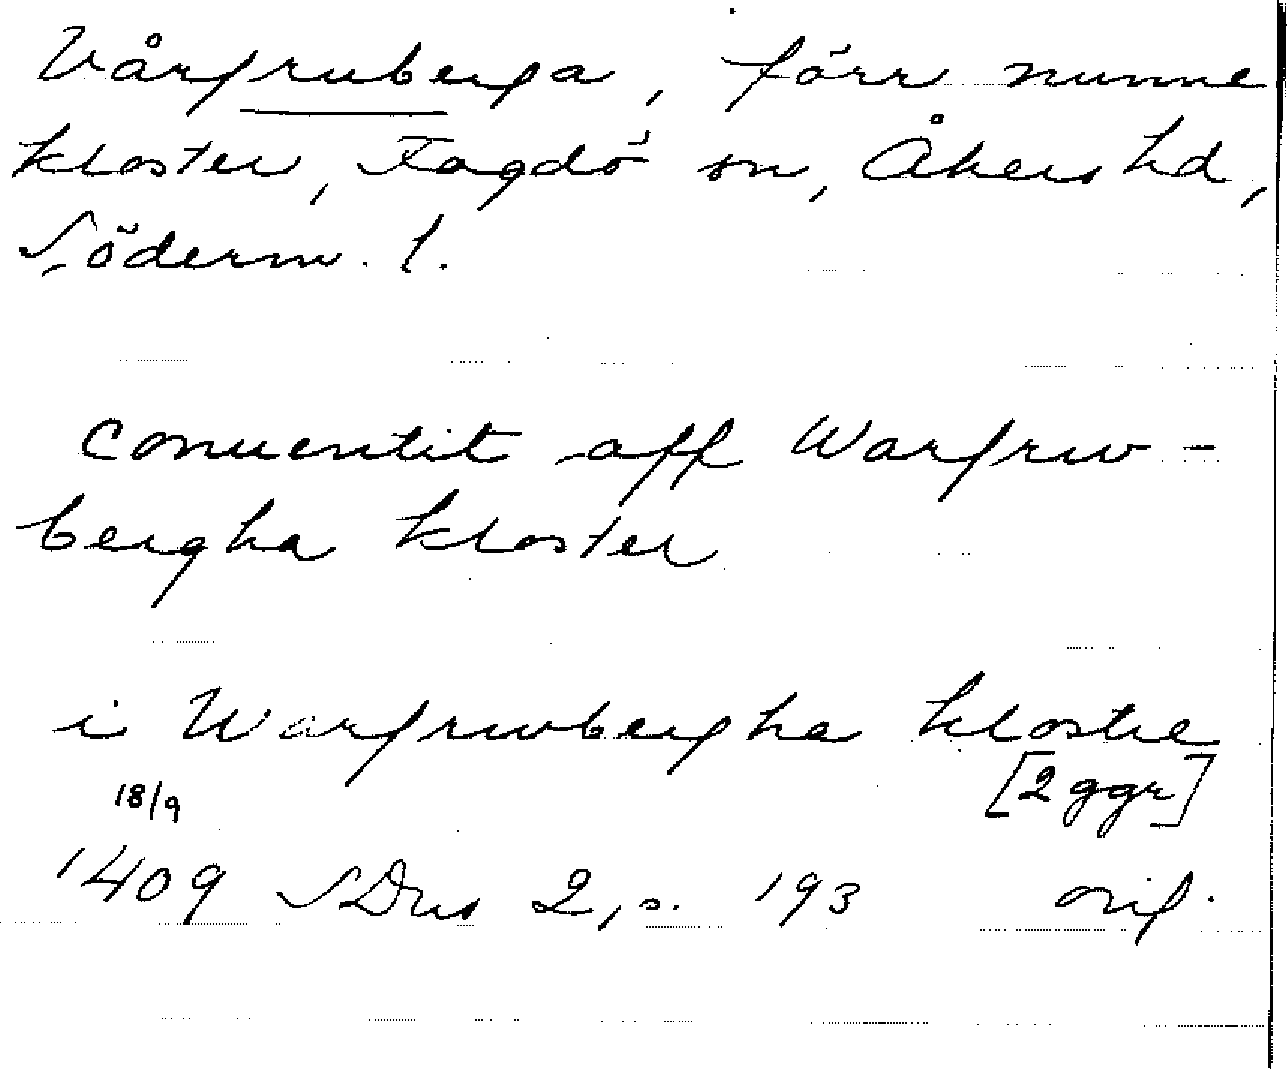 Vårfruberga, förr nunne
kloster, Fogdö sn, Åkers hd,
Söderm. l.
conuentit aff Warfrw-
bergha kloster
i Warfrwbergha klostre
[2 ggr]
18/9
1409 SDns 2, s. 193 orig.